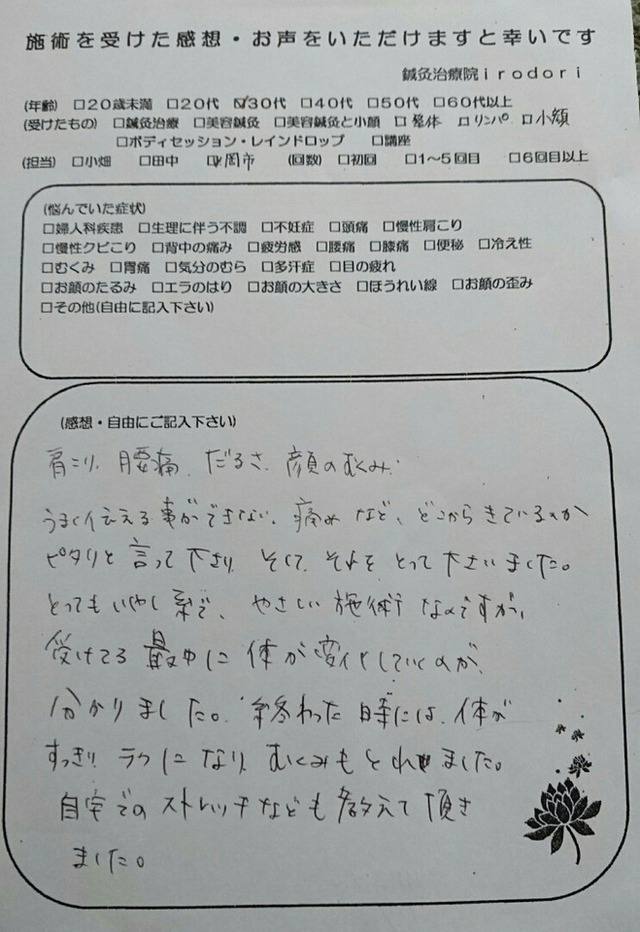 施術を受けた感想・お声をいただけますと幸いです
鍼灸治療院ｉｒｏｄｏｒｉ
(年齢) □２０歳未満 □２０代 ☑３０代 □４０代 □５０代 □６０代以上
(受けたもの) □鍼灸治療 □美容鍼灸 □美容鍼灸と小顔 □整体 □リンパ □小顔
□ボディセッション・レインドロップ □講座
(担当) □小畑 □田中 ☑岡市 (回数) □初回 □１～５回目 □６回目以上
(悩んでいた症状)
□婦人科疾患 □生理に伴う不調 □不妊症 □頭痛 □慢性肩こり
□慢性クビこり □背中の痛み □疲労感 □腰痛 □膝痛 □便秘 □冷え性
□むくみ □胃痛 □気分のむら □多汗症 □目の疲れ
□お顔のたるみ □エラのはり □お顔の大きさ □ほうれい線 □お顔の歪み
□その他(自由に記入下さい)
(感想・自由にご記入下さい)
肩こり、腰痛、だるさ、顔のむくみ、
うまく伝える事ができない、痛みなど、どこからきているのか
ピタリと言って下さり、そして、それをとって下さいました。
とってもいやし系で、やさしい施術なんですが、
受けてる最中に体が変化していくのが、
分かりました。終わった時には、体が
すっきり、ラクになり、むくみもとれました。
自宅でのストレッチなども教えて頂き
ました。